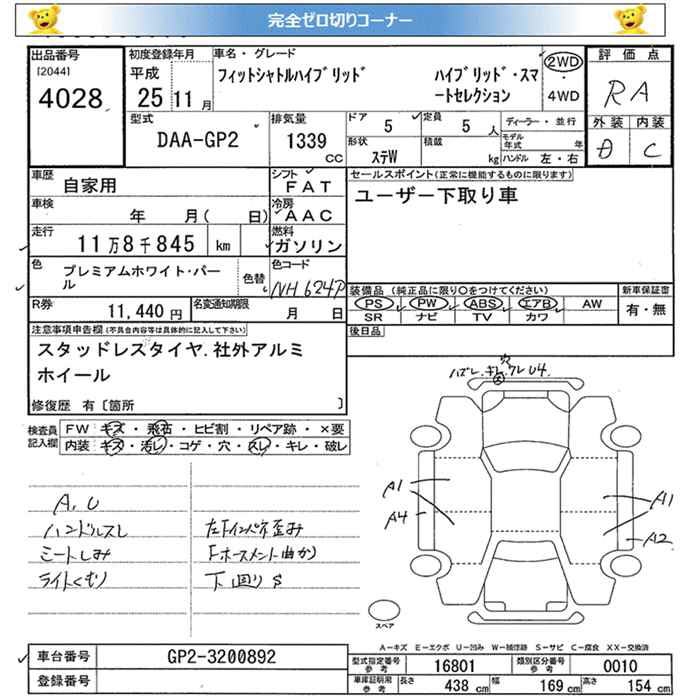 完全ゼロ切りコーナー
出品番号 初度登録年月 車名・グレード 評価点
[2044] 平成 フィットシャトルハイブリッド ハイブリッド・スマートセレクション 2WD
4028 25年 11月 4WD RA
型式 排気量 ドア 定員 ディーラー・並行 外装 内装
DAA-GP2 1339 CC 5 5人 モデル年式 年 C
形状 ステW 積載 kg ハンドル 左・右
車歴 自家用 シフト FAT セールスポイント(正常に機能するものに限ります)
車検 年 月( 日) 冷房 AAC ユーザー下取り車
走行 11万8千845 km 燃料 ガソリン
色 プレミアムホワイト・パール 色替 色コード NH624P
装備品(純正品に限り〇をつけてください) 新車保証書
R券 11,440円 名変通知期限 月 日 PS PW ABS エアB AW 有・無
SR ナビ TV カワ
注意事項申告欄(不具合内容等は具体的に記入して下さい) 後日品
スタッドレスタイヤ.社外アルミ
ホイール
修復歴 有〔箇所 〕
検査員記入欄 FW キズ・飛石・ヒビ割・リペア跡・×要
内装 キズ・汚レ・コゲ・穴・スレ・キレ・破レ
穴
ハズレ.キレ.ワレU4
A1
A4
A1
A2
A,U
ハンドルスレ 左Fインパネ歪み
シートしみ Fホースメント曲がり
ライトくもり 下回りS
スペア
A-キズ E-エクボ U-凹み W-補修跡 S-サビ C-腐食 XX-交換済
車台番号 GP2-3200892 型式指定番号 参考 16801 類別区分番号 参考 0010
登録番号 車庫証明用 参考 長さ 438cm 幅 169cm 高さ 154cm